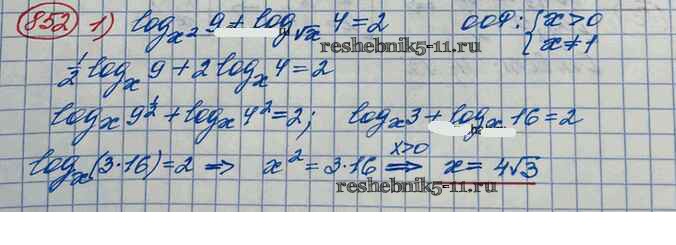 852 1) log_{x²} 9 + log_{√x} 4 = 2 ООФ: { x > 0
x ≠ 1
reshebnik5-11.ru
½ log_x 9 + 2 log_x 4 = 2
log_x 9^{½} + log_x 4² = 2; log_x 3 + log_x 16 = 2
log_x (3·16) = 2 ⇒ x² = 3·16 ⇒ x>0 x = 4√3
reshebnik5-11.ru